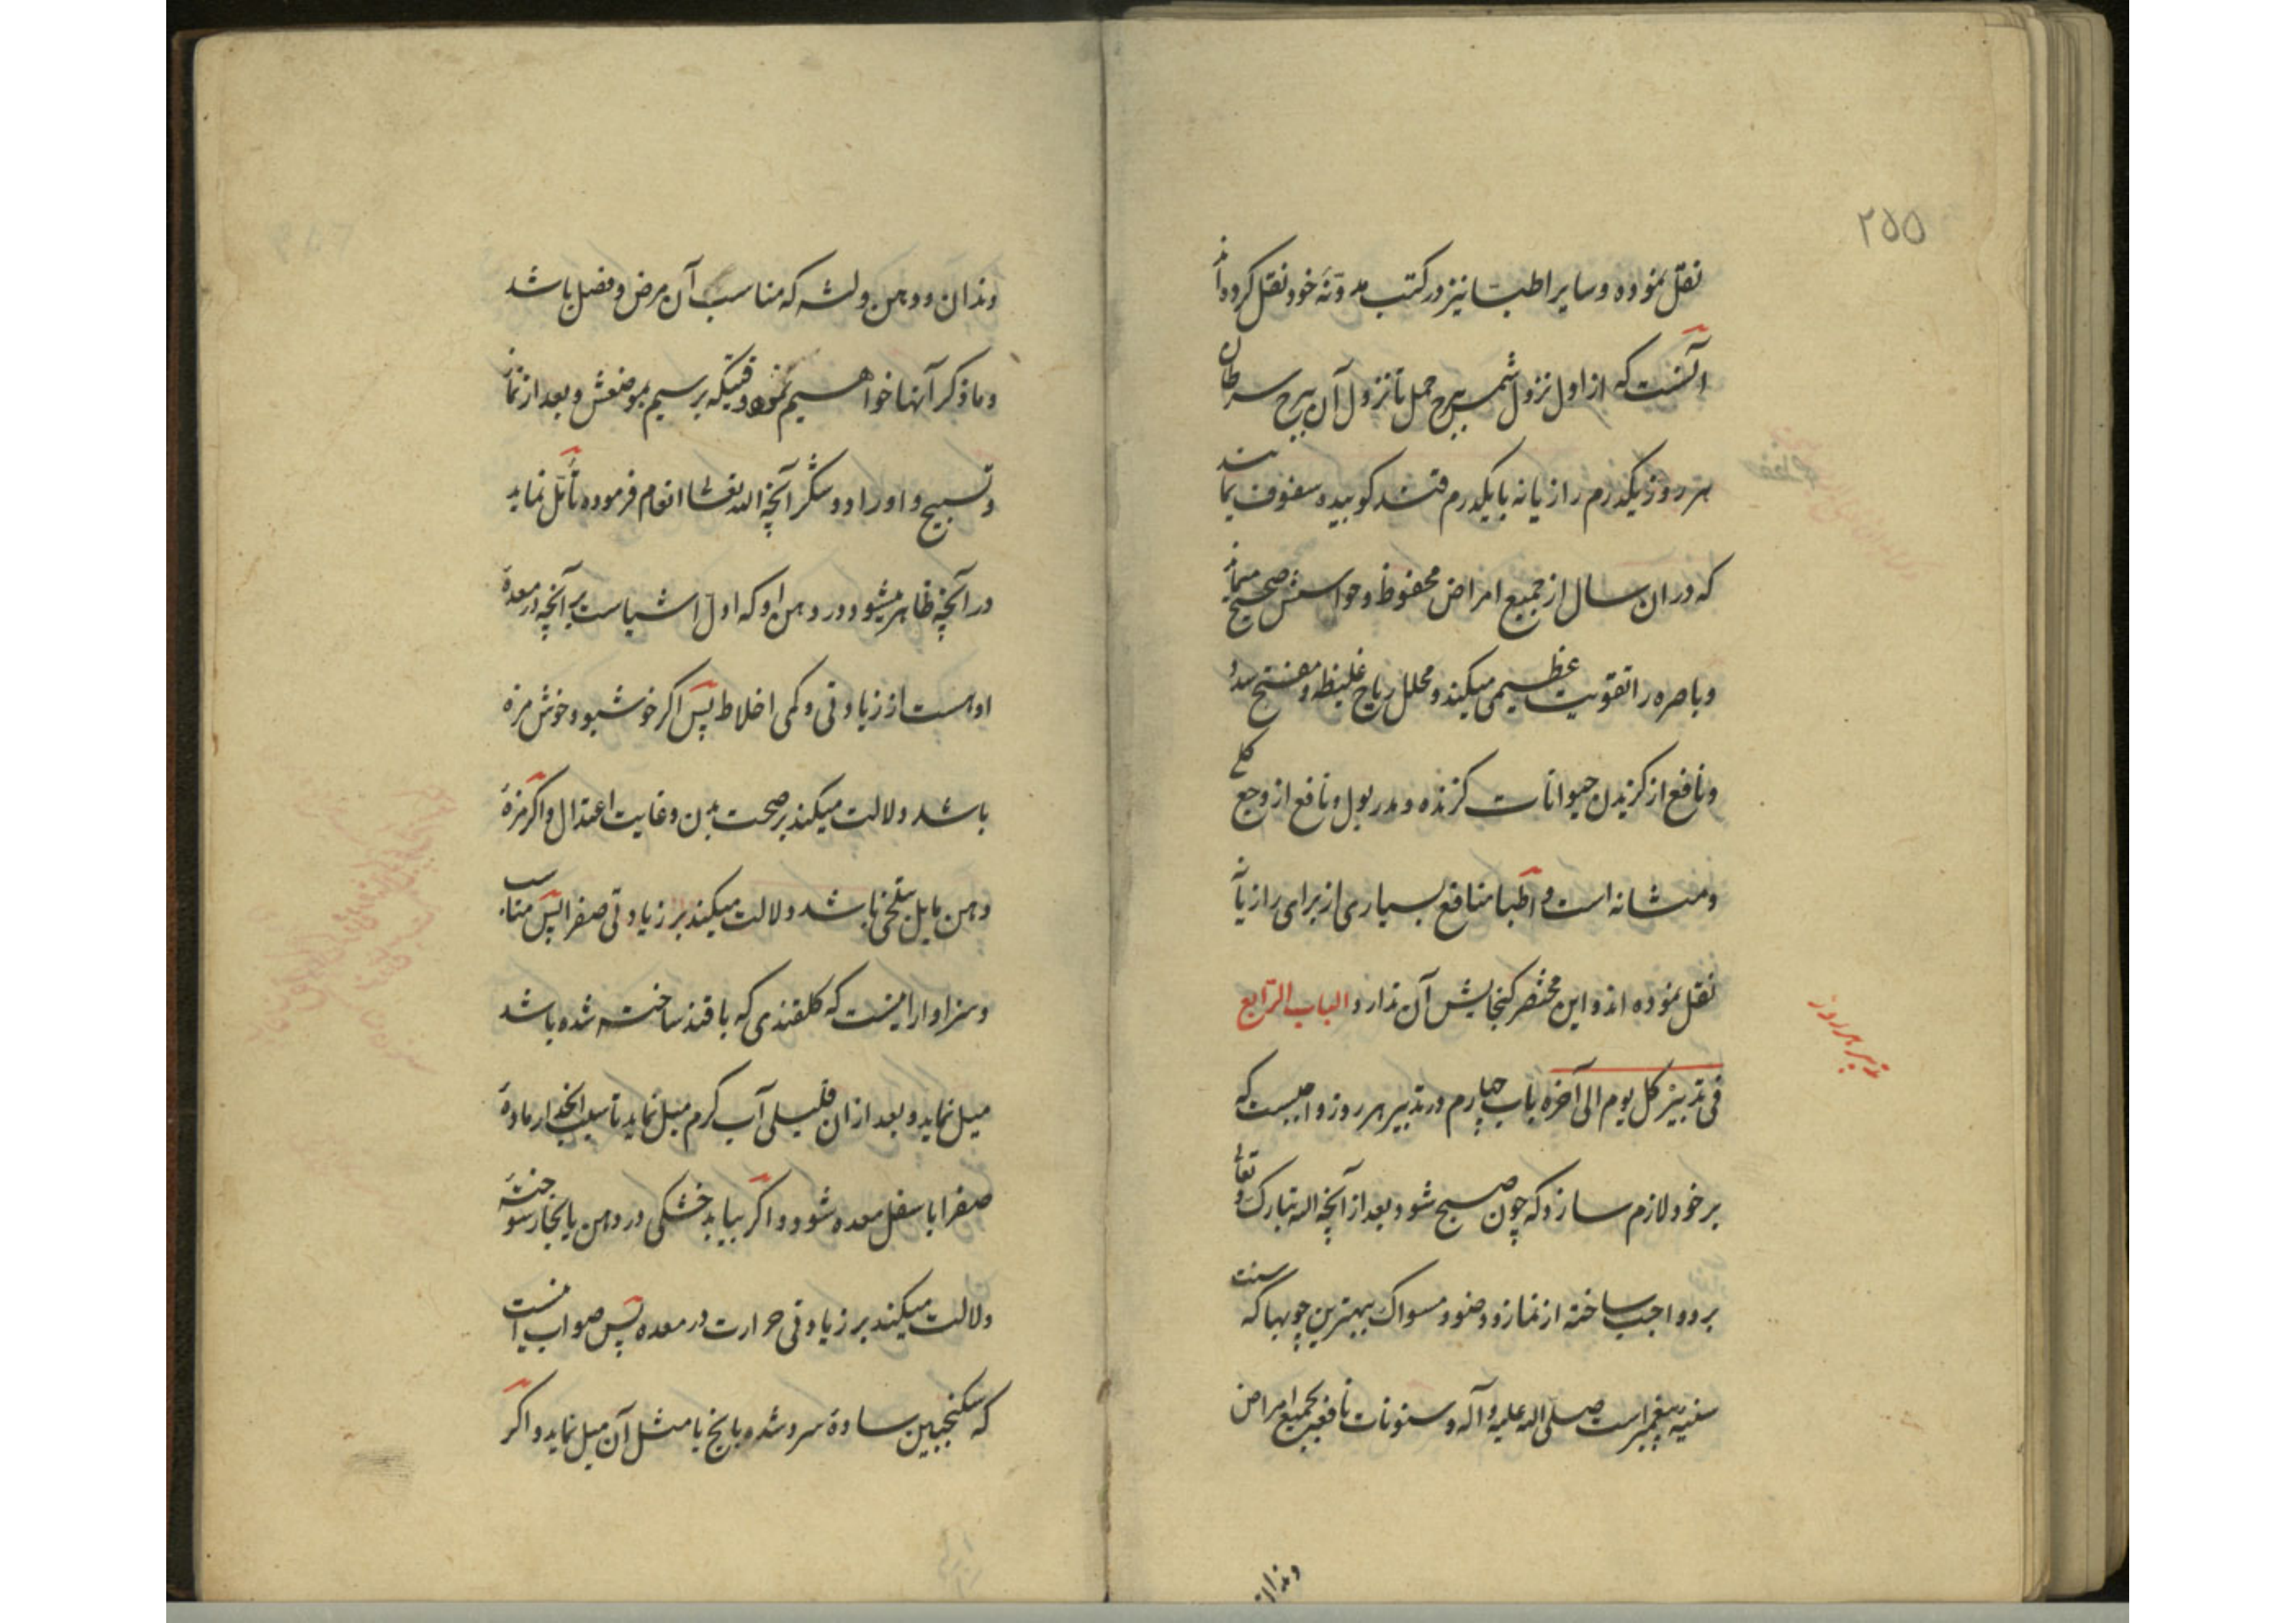 ۲۵۵
نقل نموده و سایر اطبا نیز در کتب مدوّنهٔ خود نقل کرده‌اند
آنست که از اول نزول شمس ببرج حمل تا نزول آن ببرج سرطان
هر روز یکدرم رازیانه با یکدرم قند کوبیده سفوف نمایند
که در ان سال از جمیع امراض محفوظ و حواسش صحیح میماند
و باصره را تقویت عظیمی میکند و محلل ریاح غلیظه و مفتح سدد
و نافع از کزیدن حیوانات کزنده و مدر بول و نافع از وجع کلی
و مثانه است و اطبا منافع بسیاری از برای رازیانه
نقل نموده اند و این مختصر کنجایش آن ندارد الباب الرّابع
تدبیر هر روز
فی تدبیر کل یوم الی آخره باب چهارم در تدبیر هر روز واجبست که
بر خود لازم سازد که چون صبح شود بعد از آنچه الله تبارک و تعالی
برو واجب ساخته از نماز و وضو و مسواک ببهترین چوبها که سنت
سنیه پیغمبر است صلی الله علیه و آله و سنونات نافعه بجمیع امراض
دندان
دندان و دهن و لثه که مناسب آن مرض و فصل باشد
و ما ذکر آنها خواهیم نمود وقتیکه برسیم بموضعش و بعد از نماز
و تسبیح و اوراد و شکر آنچه الله تعالی انعام فرموده تأمّل نماید
در آنچه ظاهر میشود در دهن او که اول اشیاست بر آنچه در معدهٔ
اوست از زیادتی و کمی اخلاط پس اکر خوشبو و خوش مزه
باشد دلالت میکند بر صحت بدن و غایت اعتدال و اکر مزهٔ
دهن مایل بتلخی باشد دلالت میکند بر زیادتی صفرا پس مناسب
و سزاوار اینست که کلقندی که با قند ساخته شده باشد
میل نماید و بعد از ان قلیلی آب کرم میل نماید تا سبب انحدار مادهٔ
صفرا باسفل معده شود و اکر بیابد خشکی در دهن یا بخار سوخته
دلالت میکند بر زیادتی حرارت در معده پس صواب آنست
که سکنجبین سادهٔ سرد شده با یخ یا مثل آن میل نماید و اکر